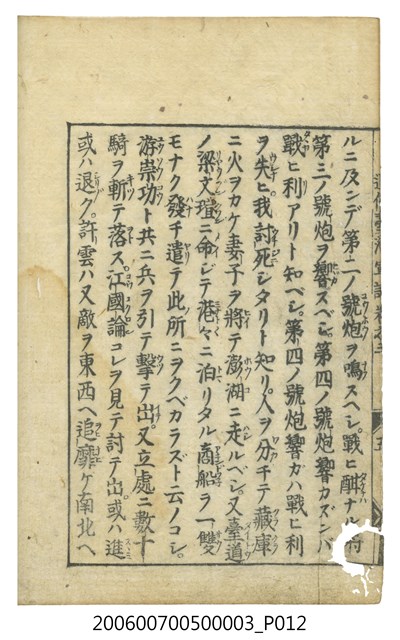 ルニ及ンデ第二ノ號炮ヲ鳴スベシ。戰ヒ酣ナル時
第三ノ號炮ヲ響スベシ。第四ノ號炮響カズンバ
戰ヒ利アリト知ベシ。第四ノ號炮響カハ戰ヒ利
ヲ失ヒ我討死シタリト知リ人ヲ分チテ藏庫
ニ火ヲカケ妻子ヲ將テ澎湖ニ走ルベシ。又臺道
ノ梁文瑄ニ命ジテ港々ニ泊リタル商船ヲ一雙
モナク發チ遣テ此所ニヲクベカラズト云ノコシ。
游崇功ト共ニ兵ヲ引テ擊テ出。又立處ニ數十
騎ヲ斬テ落ス。江國論コレヲ見テ討テ出。或ハ進
或ハ退ク。許雲ハ又敵ヲ東西ヘ追靡ケ南北ヘ
200600700500003_P012